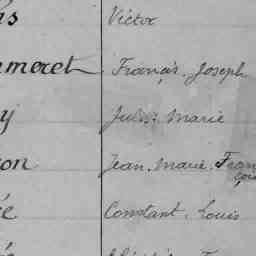 Victor
meret François Joseph
Jules Marie
on Jean Marie Fran
çois
Constant Louis